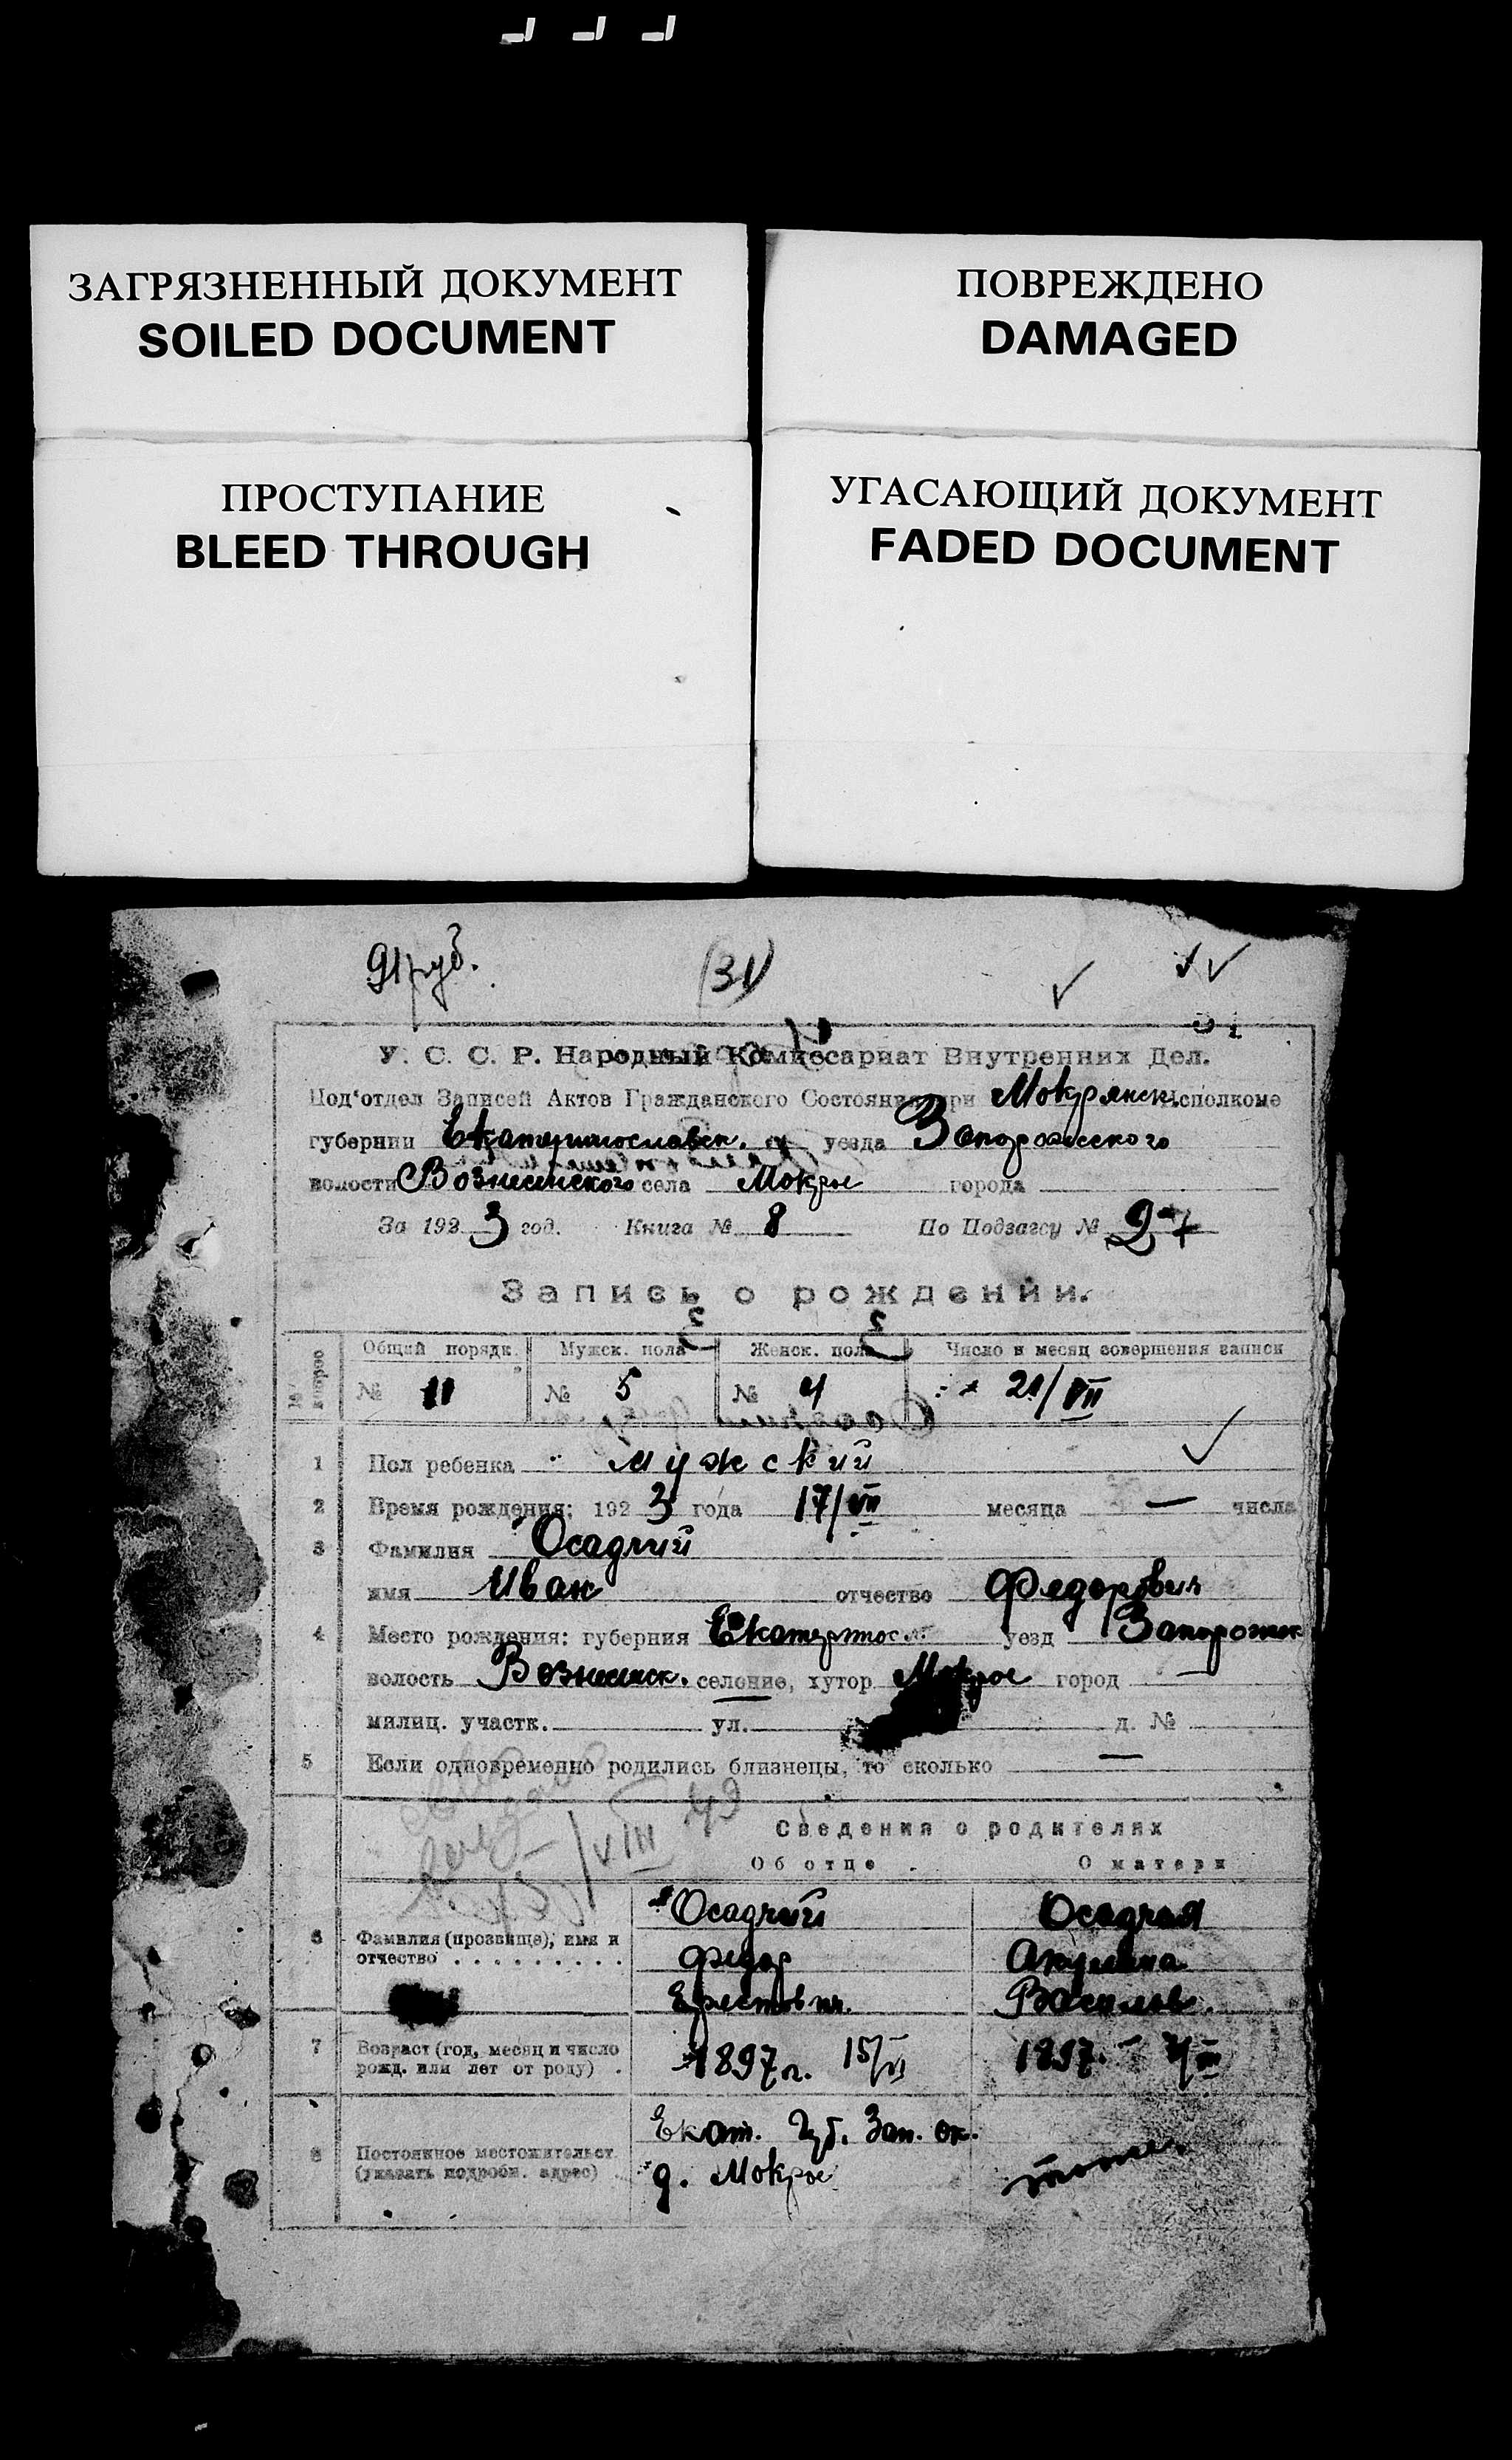 ЗАГРЯЗНЕННЫЙ ДОКУМЕНТ
SOILED DOCUMENT
ПОВРЕЖДЕНО
DAMAGED
ПРОСТУПАНИЕ
BLEED THROUGH
УГАСАЮЩИЙ ДОКУМЕНТ
FADED DOCUMENT
(31)
У. С. С. Р. Народный Комиссариат Внутренних Дел.
Под'отдел Записей Актов Гражданского Состояния при Мокрянск. исполкоме
губернии Екатеринославск. уезда Запорожского
волости Вознесенского села Мокрое города
За 1923 год. Книга № 8 По Подзагсу № 27
Запись о рождении.
Общий порядк. Мужск. пола Женск. пола Число и месяц совершения записи
№ 11 № 5 № 4 21/VII
1 Пол ребенка мужский
2 Время рождения: 1923 года 17/VII месяца — числа
3 Фамилия Осадчий
имя Иван отчество Федорович
4 Место рождения: губерния Екатеринос уезд Запорожск
волость Вознесенск. селение, хутор Мокрое город —
милиц. участк. ул. д. №
5 Если одновременно родились близнецы, то сколько —
Сведения о родителях
Об отце. О матери
6 Фамилия (прозвище), имя и отчество
Осадчий Осадчая
Федор Акулина
Васильев.
7 Возраст (год, месяц и число рожд. или лет от роду)
1897 г. 15/VI 1897.
8 Постоянное местожительст. (указать подробн. адрес)
Екат. Губ. Зап. ок.
д. Мокрое